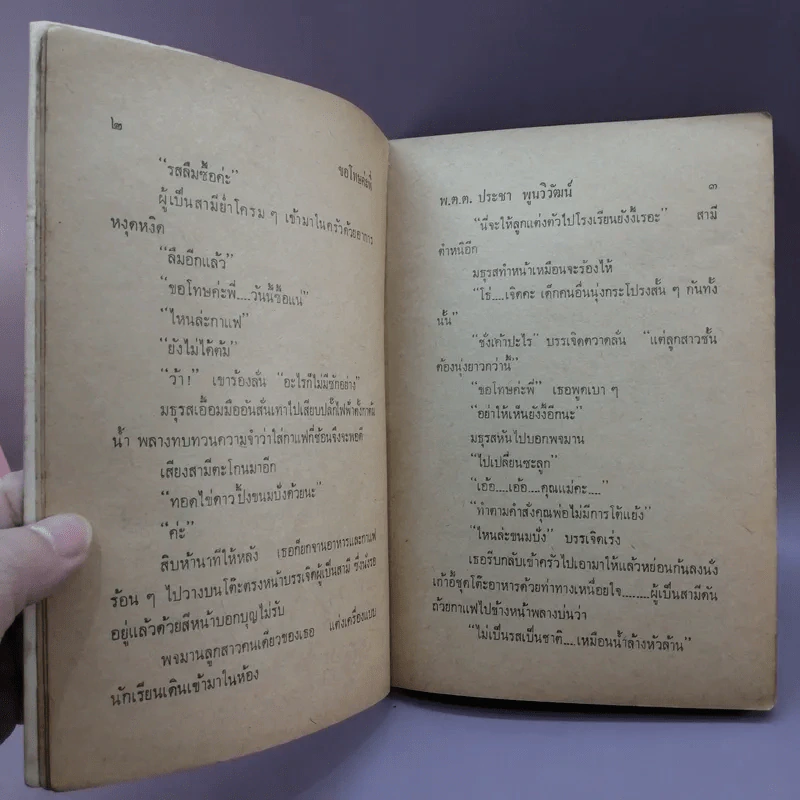 ๒
ขอโทษค่ะพี่
“รสลืมซื้อค่ะ”
ผู้เป็นสามีย่ำโครม ๆ เข้ามาในครัวด้วยอาการ
หงุดหงิด
“ลืมอีกแล้ว”
“ขอโทษค่ะพี่....วันนี้ซื้อแน่”
“ไหนล่ะกาแฟ”
“ยังไม่ได้ต้ม”
“ว้า!” เขาร้องลั่น “อะไรก็ไม่มีซักอย่าง”
มธุรสเอื้อมมืออันสั่นเทาไปเสียบปลั๊กไฟฟ้าตั้งกาต้ม
น้ำ พลางทบทวนความจำว่าใส่กาแฟกี่ช้อนจึงจะพอดี
เสียงสามีตะโกนมาอีก
“ทอดไข่ดาวปิ้งขนมปังด้วยนะ”
“ค่ะ”
สิบห้านาทีให้หลัง เธอก็ยกจานอาหารและกาแฟ
ร้อน ๆ ไปวางบนโต๊ะตรงหน้าบรรเจิดผู้เป็นสามี ซึ่งนั่งรอ
อยู่แล้วด้วยสีหน้าบอกบุญไม่รับ
พจมานลูกสาวคนเดียวของเธอ แต่งเครื่องแบบ
นักเรียนเดินเข้ามาในห้อง
พ.ต.ต. ประชา พูนวิวัฒน์
๓
“นี่จะให้ลูกแต่งตัวไปโรงเรียนยังงี้เรอะ” สามี
ตำหนิอีก
มธุรสทำหน้าเหมือนจะร้องไห้
“โธ่....เจิดคะ เด็กคนอื่นนุ่งกระโปรงสั้น ๆ กันทั้ง
นั้น”
“ชั่งเค้าปะไร” บรรเจิดตวาดลั่น “แต่ลูกสาวชั้น
ต้องนุ่งยาวกว่านี้”
“ขอโทษค่ะพี่” เธอพูดเบา ๆ
“อย่าให้เห็นยังงี้อีกนะ”
มธุรสหันไปบอกพจมาน
“ไปเปลี่ยนซะลูก”
“เอ้อ....เอ้อ....คุณแม่คะ....”
“ทำตามคำสั่งคุณพ่อไม่มีการโต้แย้ง”
“ไหนล่ะขนมปัง” บรรเจิดเร่ง
เธอรีบกลับเข้าครัวไปเอามาให้แล้วหย่อนก้นลงนั่ง
เก้าอี้ชุดโต๊ะอาหารด้วยท่าทางเหนื่อยใจ........ผู้เป็นสามีดัน
ถ้วยกาแฟไปข้างหน้าพลางบ่นว่า
“ไม่เป็นรสเป็นชาติ....เหมือนน้ำล้างหัวล้าน”